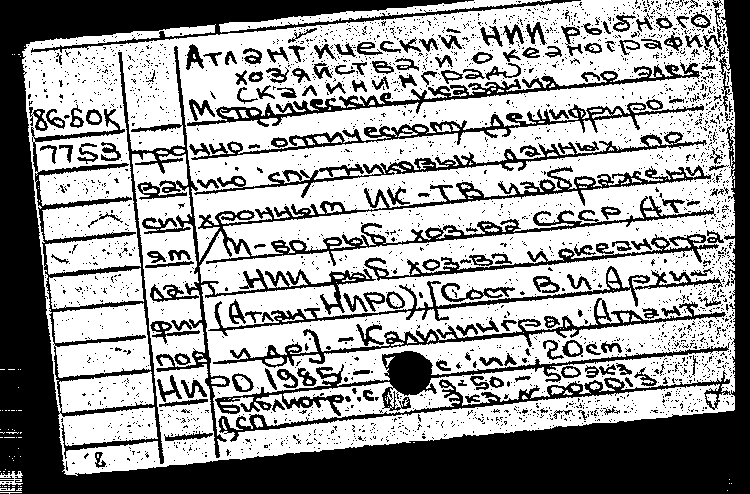 Атлантический НИИ рыбного
хозяйства и океанографии
(Калининград)
86-50К
Методические указания по элек-
7753
тронно-оптическому дешифриро-
ванию спутниковых данных по
синхронным ИК-ТВ изображени
ям / М-во рыб. хоз-ва СССР, Ат-
лант. НИИ рыб. хоз-ва и океаногра-
фии (АтлантНИРО); [Сост. В.И. Архи-
пов и др.]. - Калининград: Атлант-
НИРО, 1985. - с.: ил.; 20см.
Библиогр.: с. 49-50. - 50 экз.
Экз. № 000013.
ДСП.
8